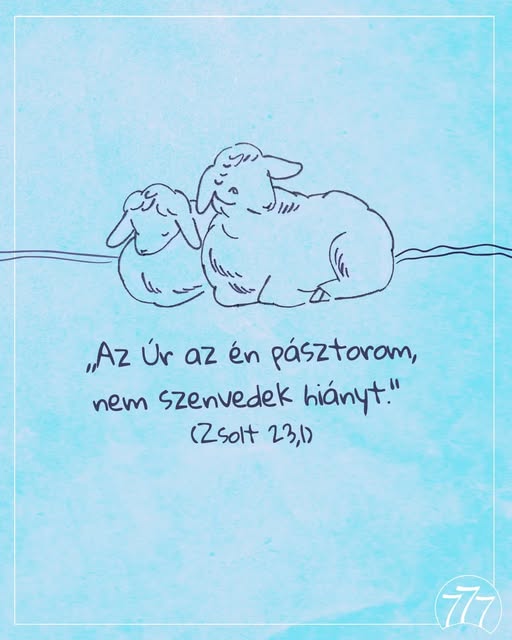 „Az Úr az én pásztorom,
nem szenvedek hiányt."
(Zsolt 23,1)
777